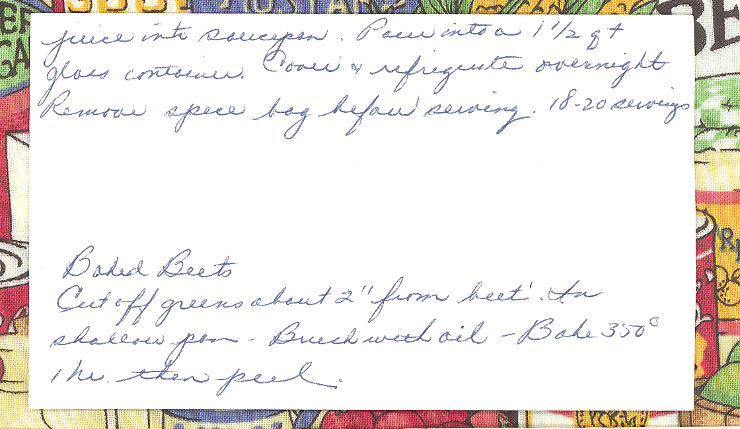 juice into saucepan. Pour into a 1 1/2 qt
glass container. Cover & refrigerate overnight
Remove spice bag before serving. 18-20 servings
Baked Beets
Cut off greens about 2" from beet. In
shallow pan - Brush with oil - Bake 350°
1 hr. then peel.